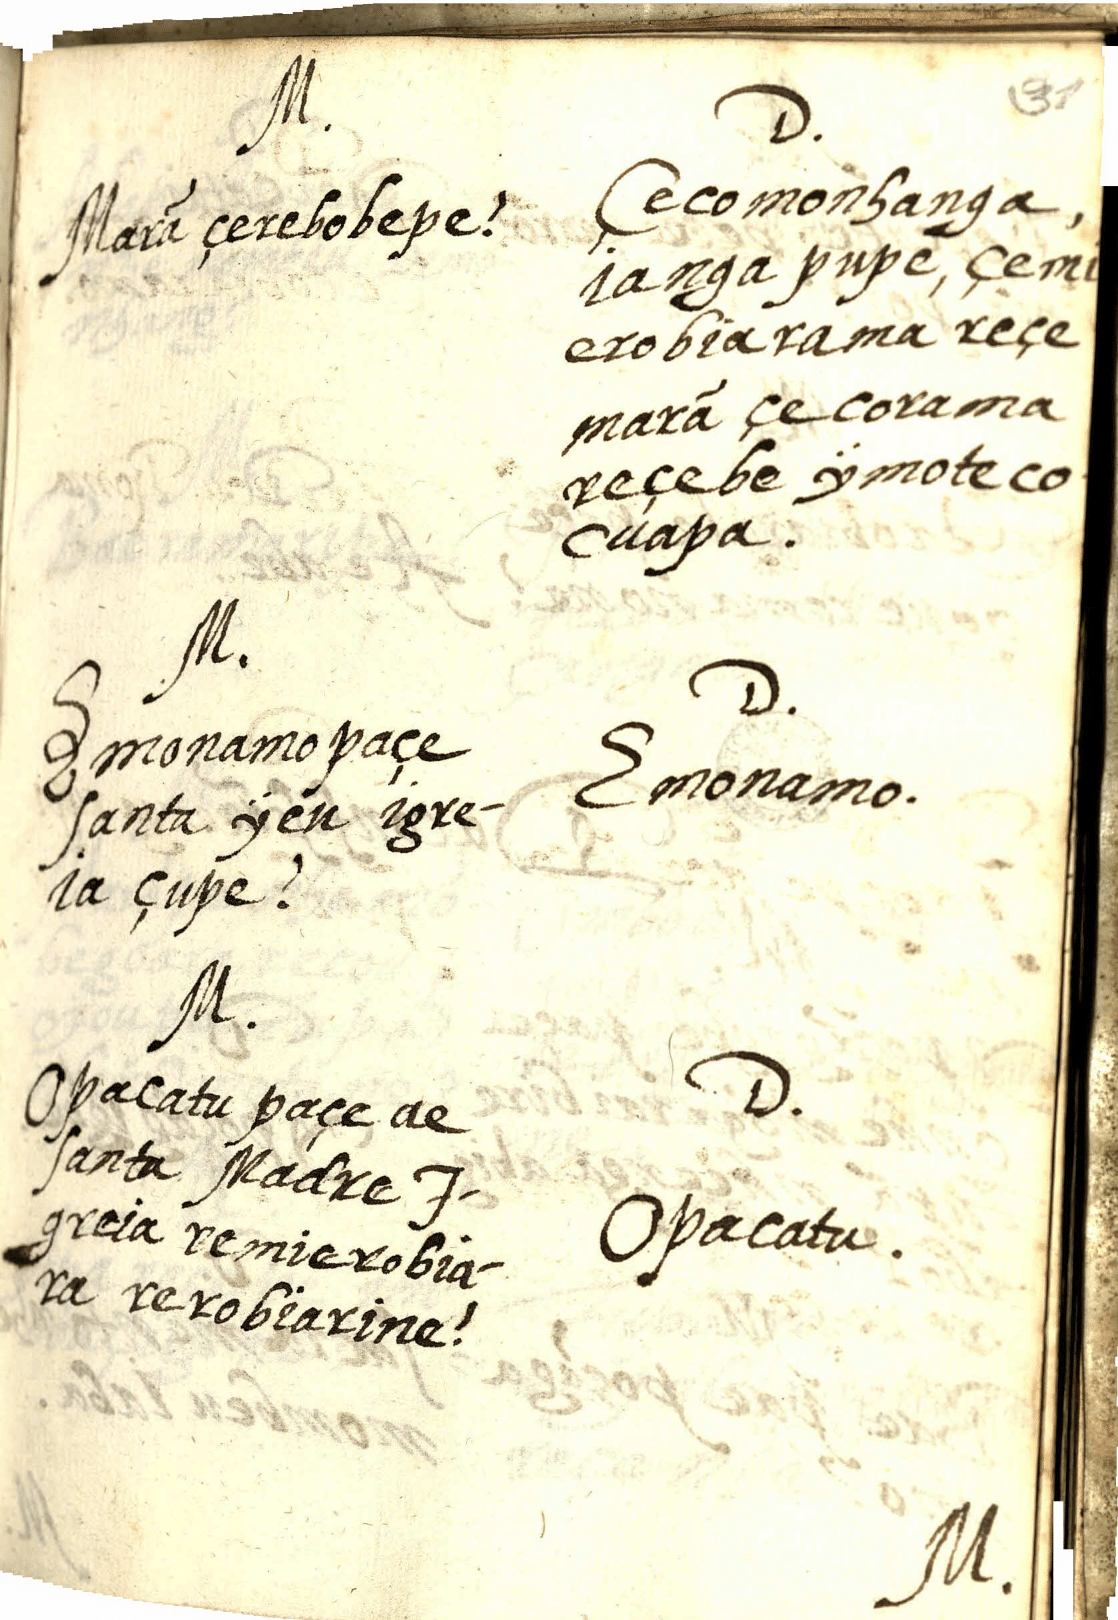 31
M.
Marã çerebobepe?
D.
Çecomonhanga,
ianga pupè, çemi
erobiarama reçe
marã çecorama
reçebe ÿmoteco
cuapa.
M.
Emonamo paçe
santa ÿeu igre-
ia çupe?
D.
Emonamo.
M.
Opacatu paçe ae
santa Madre I-
greia remierobia-
ra rerobiarine?
D.
Opacatu.
M.